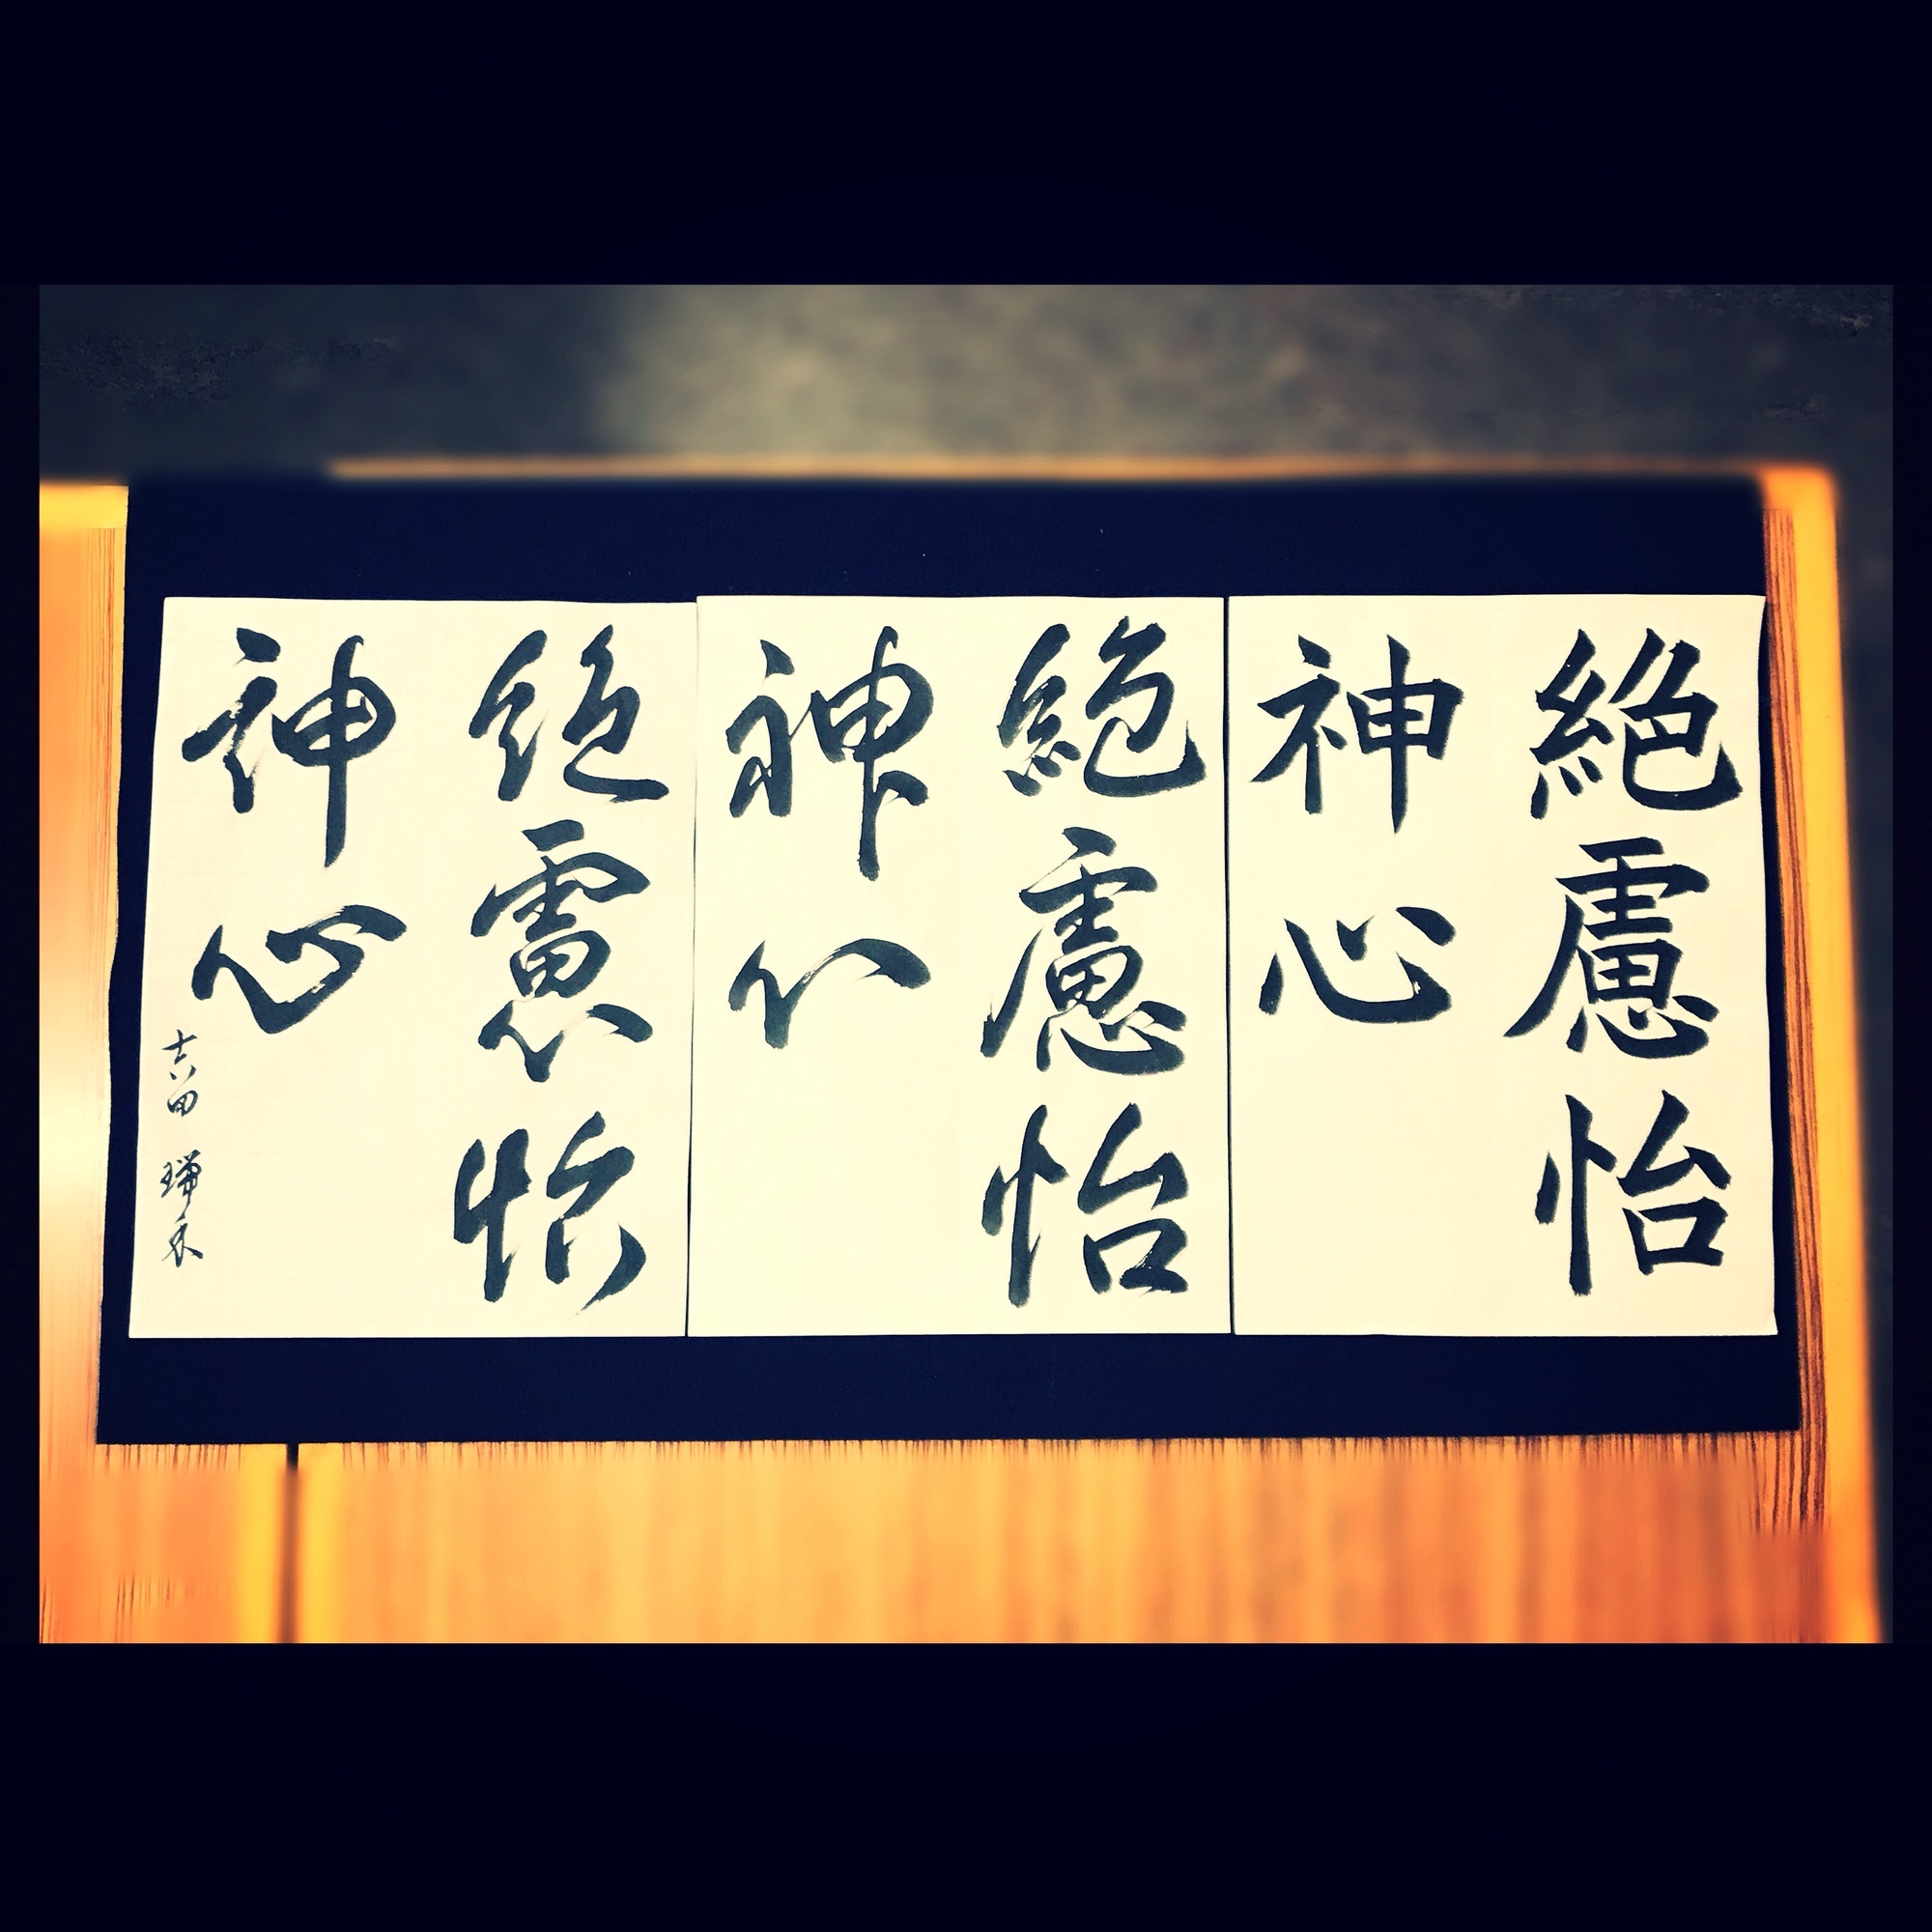 絶慮怡
神心
絶慮怡
神心
絶慮怡
神心
吉田